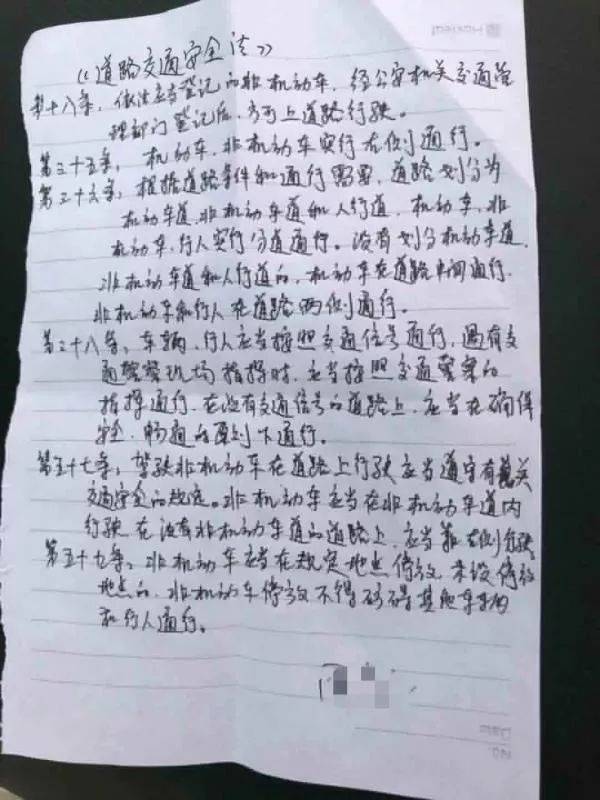 《道路交通安全法》
第十八条，依法应当登记的非机动车，经公安机关交通管
理部门登记后，方可上道路行驶。
第三十五条，机动车，非机动车实行右侧通行。
第三十六条，根据道路条件和通行需要，道路划分为
机动车道，非机动车道和人行道，机动车，非
机动车，行人实行分道通行。没有划分机动车道，
非机动车道和人行道的，机动车在道路中间通行，
非机动车和行人在道路两侧通行。
第三十八条，车辆，行人应当按照交通信号通行，遇有交
通警察现场指挥时，应当按照交通警察的
指挥通行，在没有交通信号的道路上，应当在确保
安全，畅通的原则下通行。
第五十七条，驾驶非机动车在道路上行驶应当遵守有关
交通安全的规定。非机动车应当在非机动车道内
行驶，在没有非机动车道的道路上，应当靠右侧行驶
第五十九条，非机动车应当在规定地点停放，未设停放
地点的，非机动车停放不得妨碍其他车辆
和行人通行。